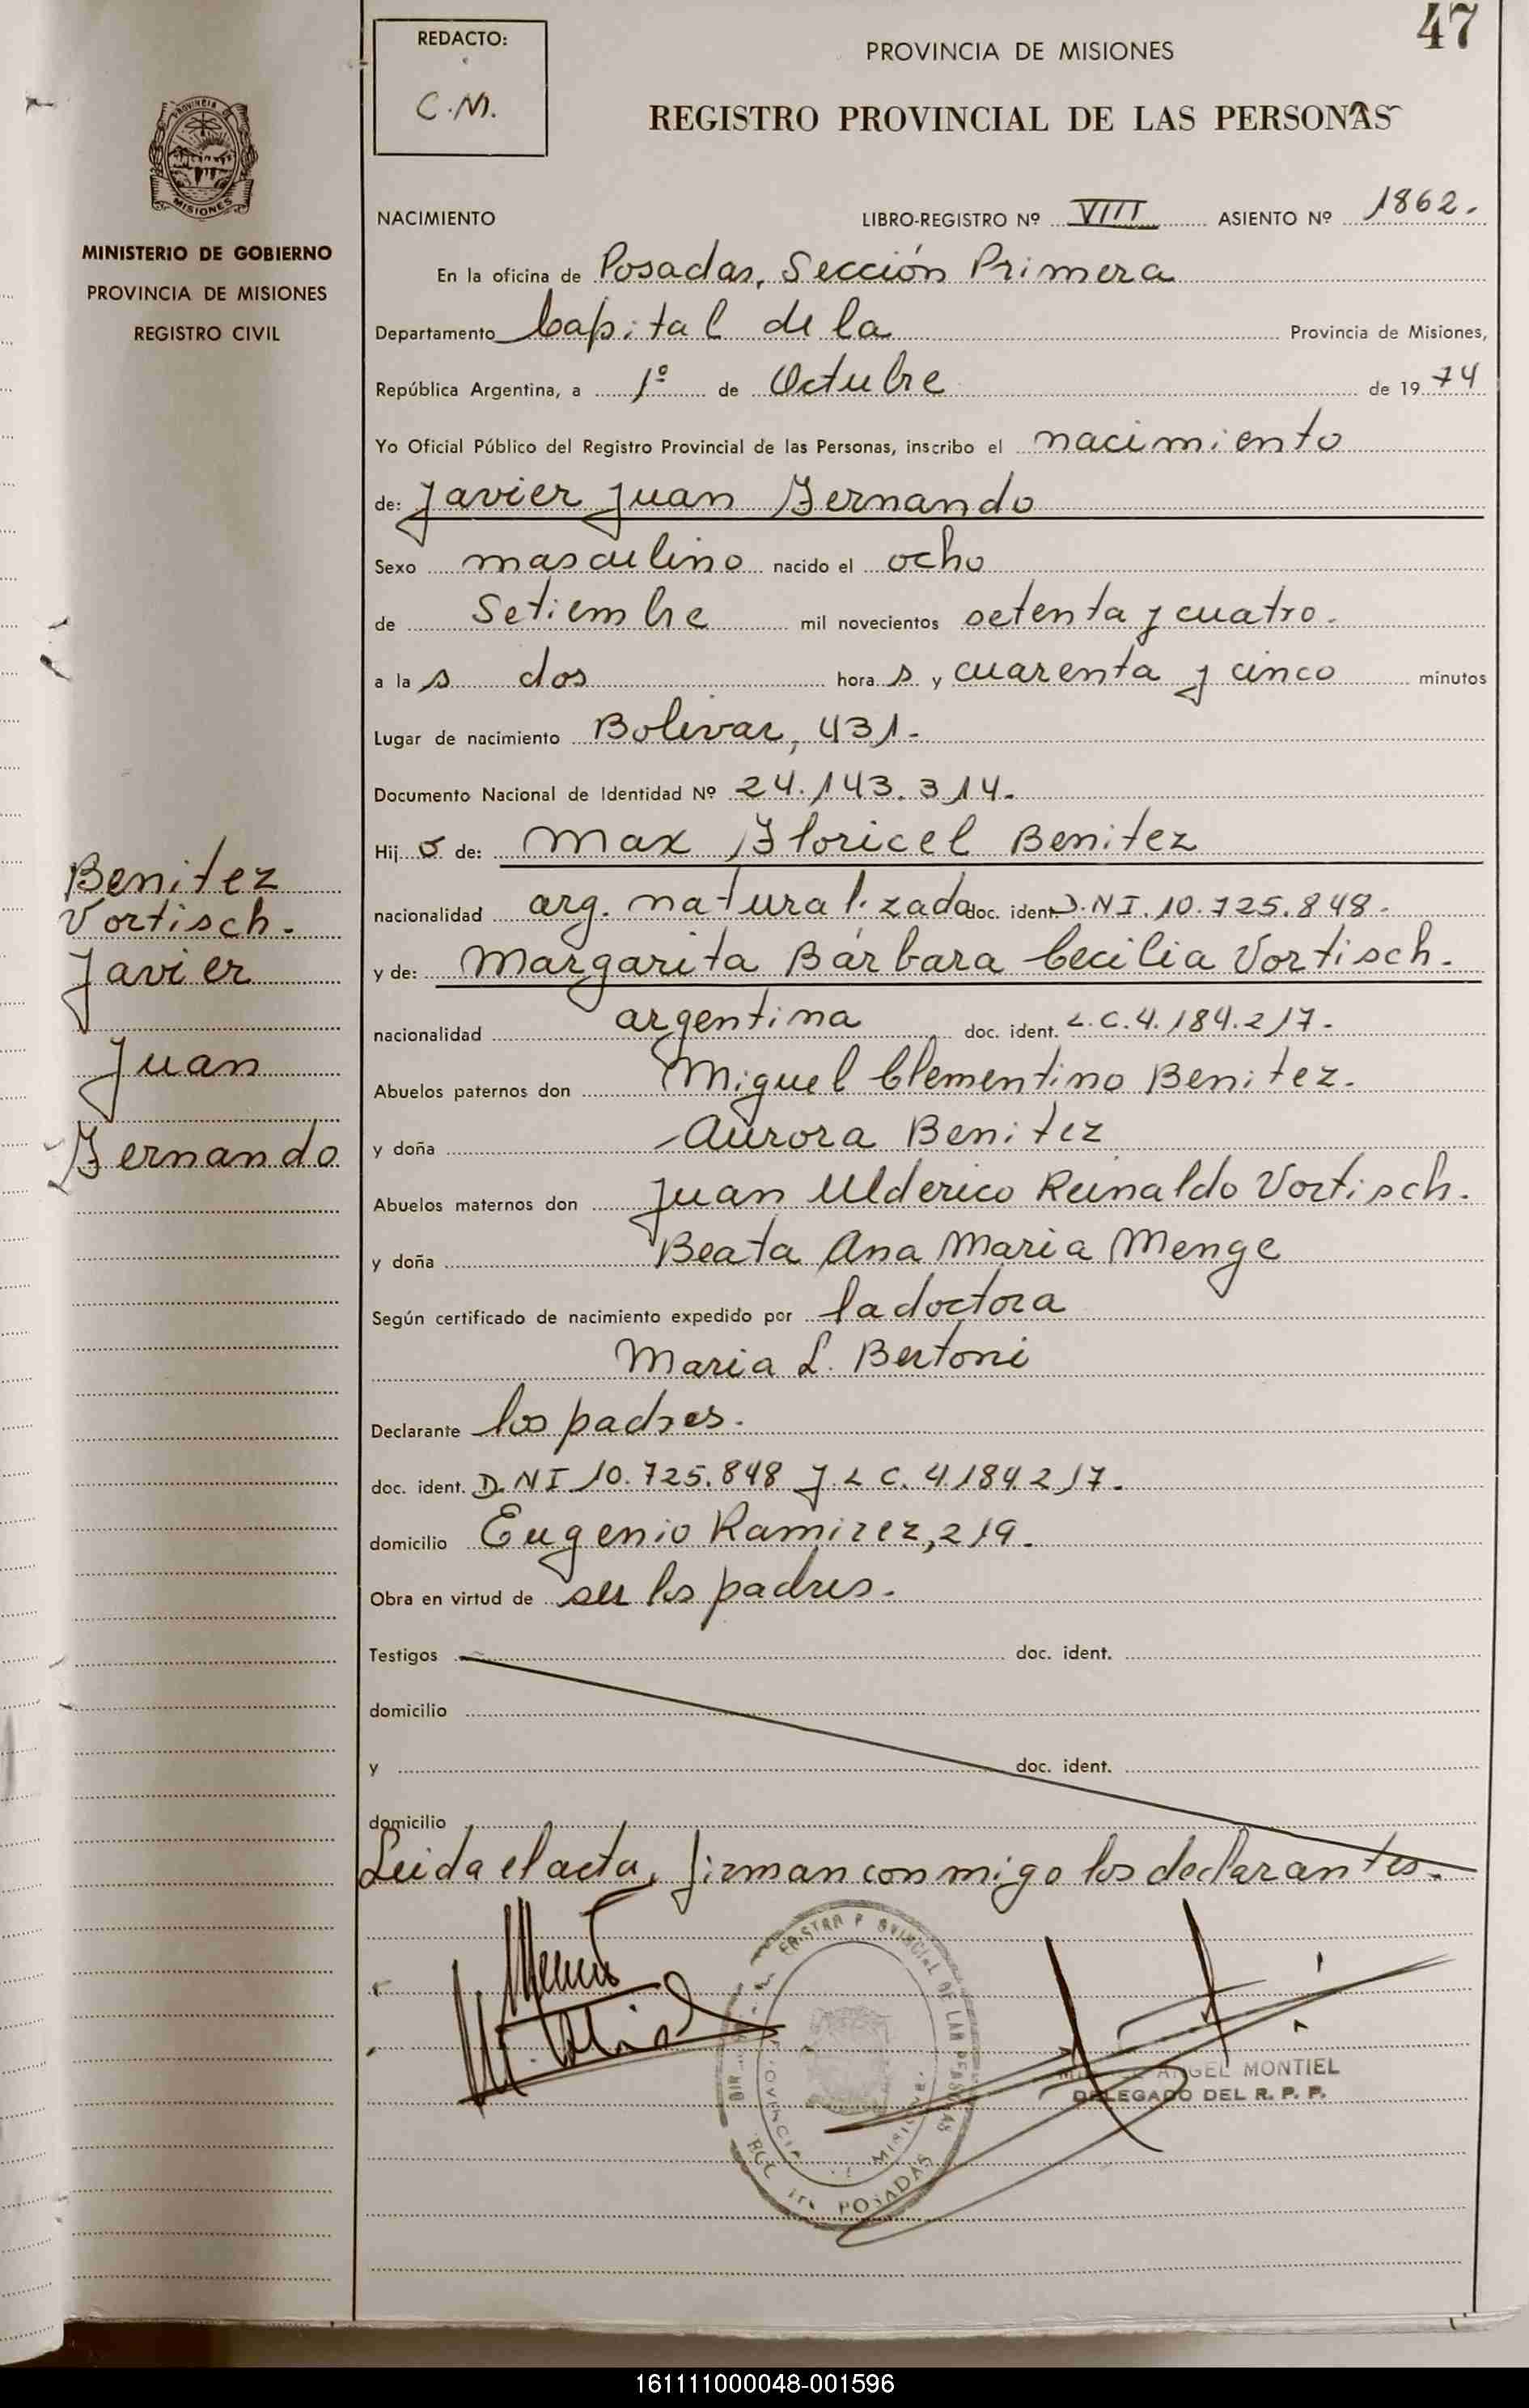 47
REDACTO:
C.M.
PROVINCIA DE MISIONES
REGISTRO PROVINCIAL DE LAS PERSONAS
PROVINCIA
MISIONES
MINISTERIO DE GOBIERNO
PROVINCIA DE MISIONES
REGISTRO CIVIL
NACIMIENTO LIBRO-REGISTRO Nº VIII ASIENTO Nº 1862.
En la oficina de Posadas, Sección Primera
Departamento Capital de la Provincia de Misiones,
República Argentina, a 1º de Octubre de 1974
Yo Oficial Público del Registro Provincial de las Personas, inscribo el nacimiento
de: Javier Juan Fernando
Sexo masculino nacido el ocho
de Setiembre mil novecientos setenta y cuatro.
a las dos horas y cuarenta y cinco minutos
Lugar de nacimiento Bolivar, 431.
Documento Nacional de Identidad Nº 24.143.314.
Hijo de: Max Floricel Benitez
nacionalidad arg. naturalizado doc. ident. D.N.I. 10.725.848.
y de: Margarita Bárbara Cecilia Vortisch.
nacionalidad argentina doc. ident. L.C. 4.184.217.
Abuelos paternos don Miguel Clementino Benitez.
y doña Aurora Benitez
Abuelos maternos don Juan Ulderico Reinaldo Vortisch.
y doña Beata Ana Maria Menge
Según certificado de nacimiento expedido por la doctora
Maria L. Bertoni
Declarante los padres.
doc. ident. D.N.I 10.725.848 y L C. 4.184.217.
domicilio Eugenio Ramirez, 219.
Obra en virtud de ser los padres.
Testigos doc. ident.
domicilio
y doc. ident.
domicilio
Leida el acta, firman conmigo los declarantes.
Benitez
Vortisch.
Javier
Juan
Fernando
ANGEL MONTIEL
DELEGADO DEL R. P. P.
POSADAS
161111000048-001596